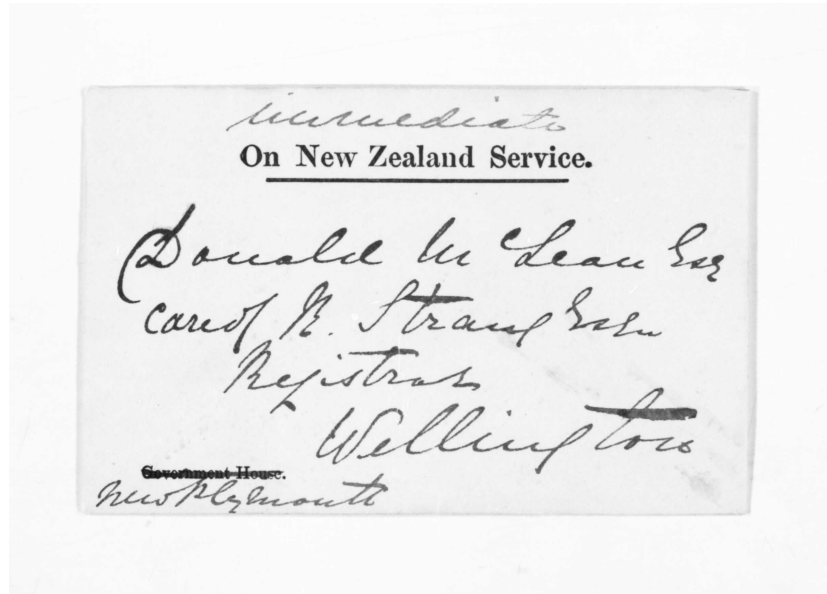 immediate
On New Zealand Service.
Donald McLean Esq
care of R. Strang Esqr
Registrar
Wellington
Government House.
New Plymouth